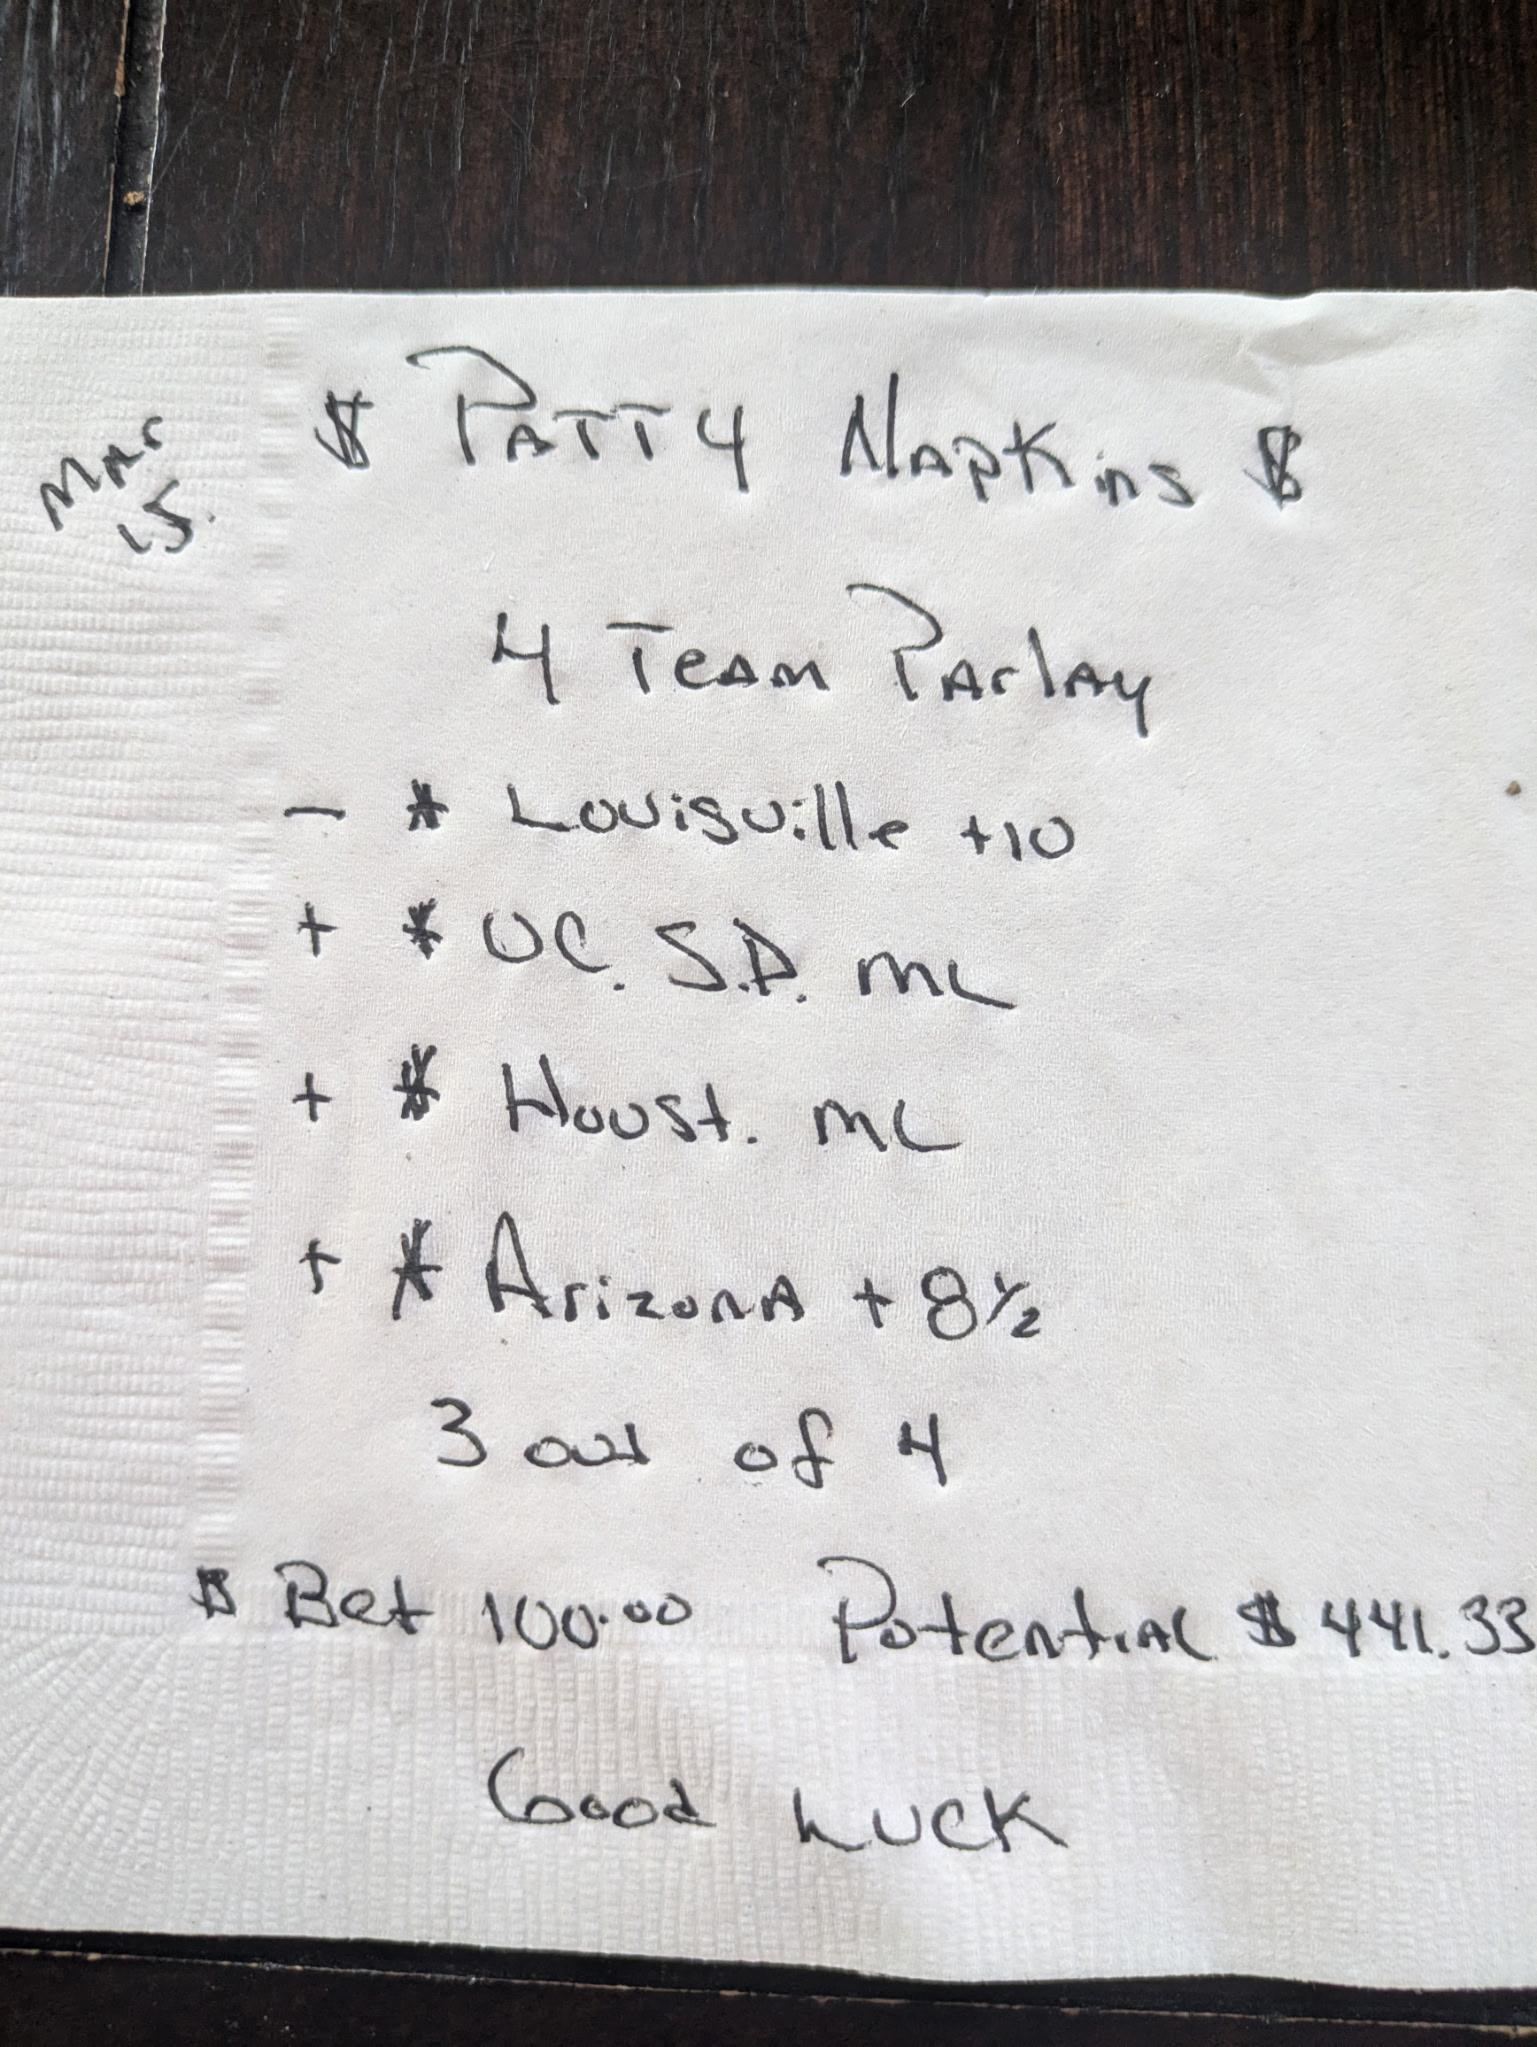 Mar
15.
$ Patty Napkins $
4 Team Parlay
- * Louisville +10
+ * UC. S.D. ML
+ * Houst. ML
+ * Arizona + 8 1/2
3 out of 4
$ Bet 100.00 Potential $ 441.33
Good Luck